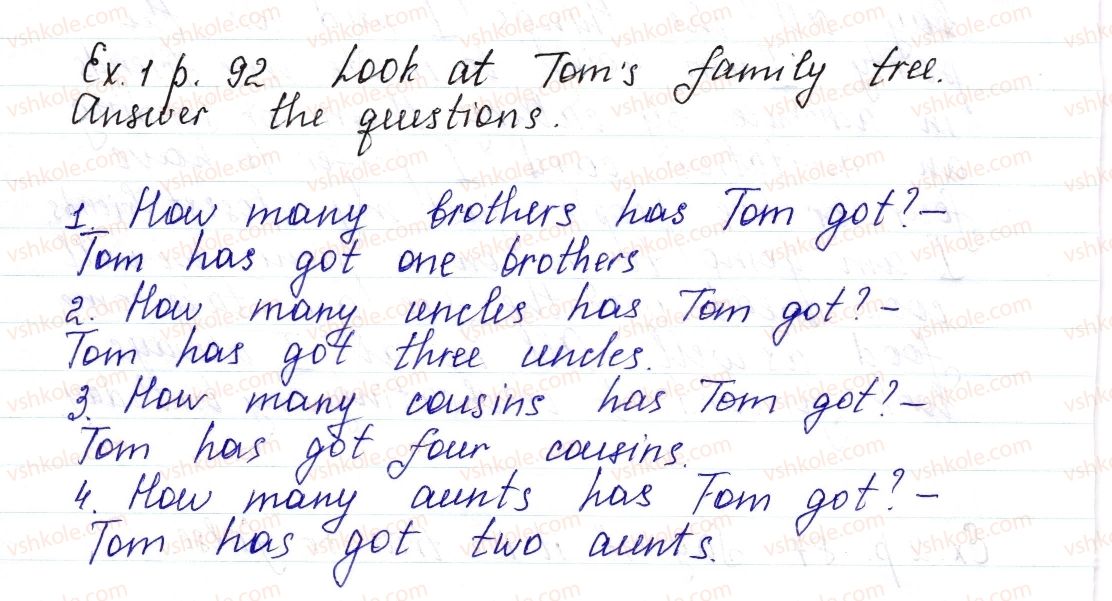 Ex. 1 p. 92 Look at Tom's family tree.
Answer the questions.
1. How many brothers has Tom got? –
Tom has got one brothers
2. How many uncles has Tom got? –
Tom has got three uncles.
3. How many cousins has Tom got? –
Tom has got four cousins.
4. How many aunts has Tom got? –
Tom has got two aunts.